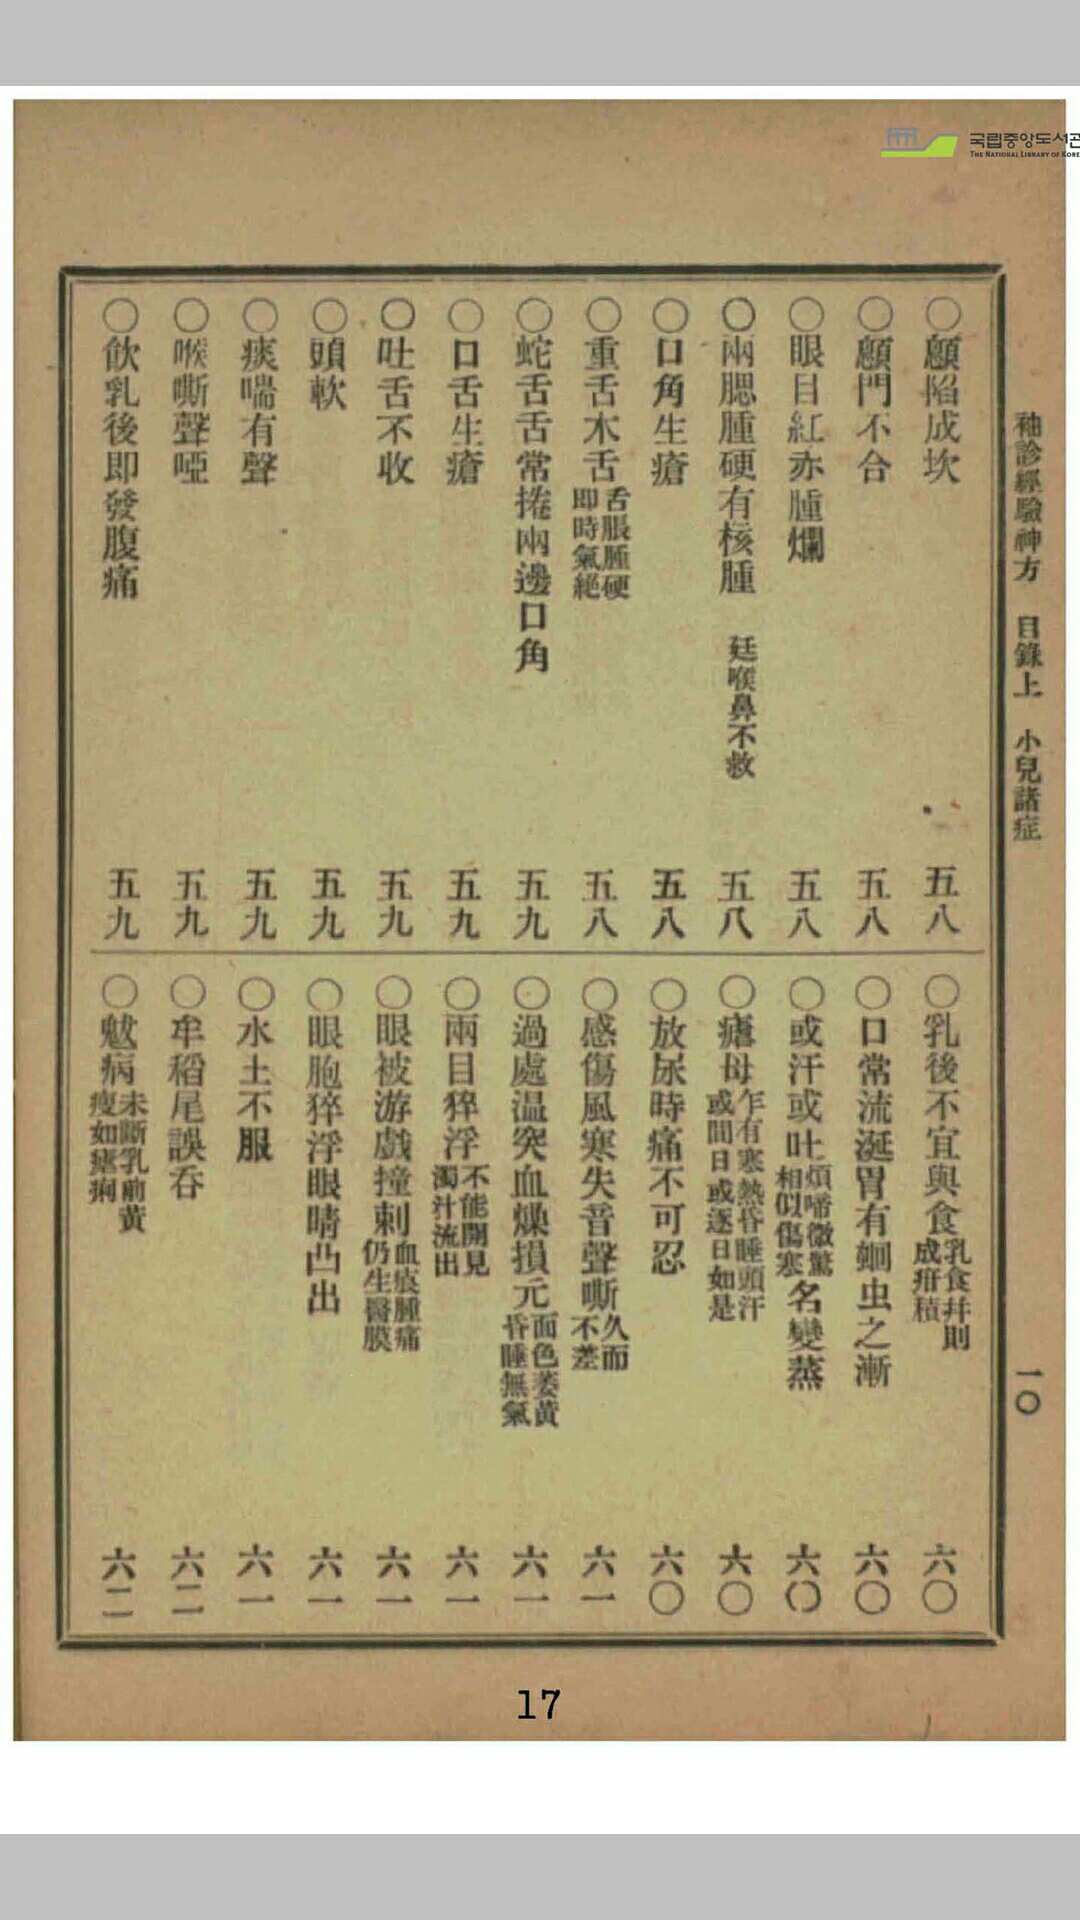 국립중앙도서관
THE NATIONAL LIBRARY OF KORE
袖診經驗神方 目錄上 小兒諸症 一〇
〇顖陷成坎 五八
〇顖門不合 五八
〇眼目紅赤腫爛 五八
〇兩腮腫硬有核腫 廷喉鼻不救 五八
〇口角生瘡 五八
〇重舌木舌 舌脹腫硬即時氣絕 五八
〇蛇舌舌常捲兩邊口角 五九
〇口舌生瘡 五九
〇吐舌不收 五九
〇頭軟 五九
〇痰喘有聲 五九
〇喉嘶聲啞 五九
〇飮乳後即發腹痛 五九
〇乳後不宜與食 乳食幷則成疳積 六〇
〇口常流涎胃有蛔虫之漸 六〇
〇或汗或吐 煩嗜微驚相似傷寒 名變蒸 六〇
〇瘧母 乍有寒熱昏睡頭汗或間日或逐日如是 六〇
〇放尿時痛不可忍 六〇
〇感傷風寒失音聲嘶 久而不差 六一
〇過處温突血燥損元 面色萎黃昏睡無氣 六一
〇兩目猝浮 不能開見濁汁流出 六一
〇眼被游戲撞刺 血痕腫痛仍生翳膜 六一
〇眼胞猝浮眼睛凸出 六一
〇水土不服 六一
〇牟稻尾誤呑 六二
〇魃病 未斷乳前黃瘦如瘧痢 六二
17